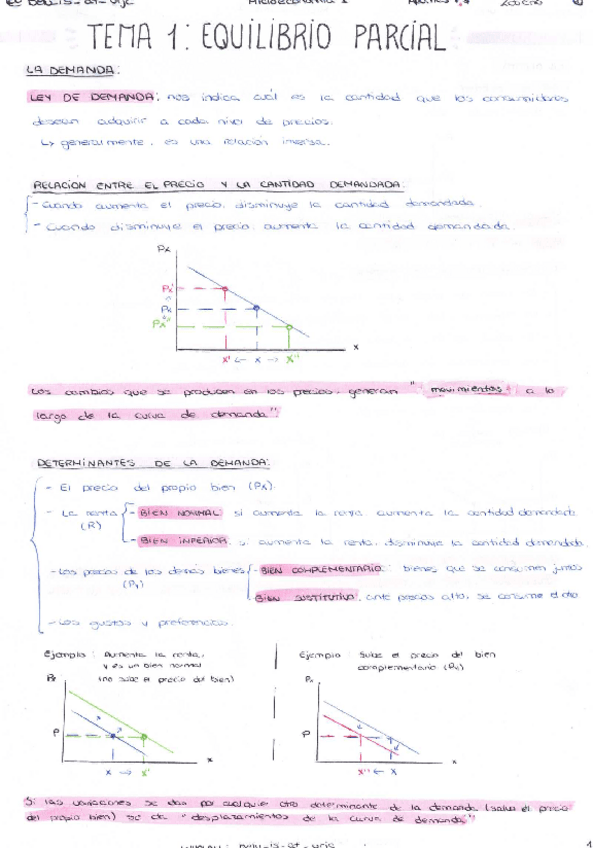 TEMA 1: EQUILIBRIO PARCIAL
LA DEMANDA:
LEY DE DEMANDA: nos indica cuál es la cantidad que los consumidores
desean adquirir a cada nivel de precios.
↳ generalmente, es una relación inversa.
RELACIÓN ENTRE EL PRECIO Y LA CANTIDAD DEMANDADA:
- Cuando aumenta el precio, disminuye la cantidad demandada.
- Cuando disminuye el precio, aumenta la cantidad demandada.
Px
Px'
Px
Px''
x
x' ← x → x''
Los cambios que se producen en los precios, generan "movimientos a lo
largo de la curva de demanda".
DETERMINANTES DE LA DEMANDA:
- El precio del propio bien (Px).
- La renta (R)
- BIEN NORMAL: si aumenta la renta aumenta la cantidad demandada
- BIEN INFERIOR: si aumenta la renta, disminuye la cantidad demandada.
- Los precios de los demás bienes (Py)
- BIEN COMPLEMENTARIO: bienes que se consumen juntos
BIEN SUSTITUTIVO: ante precios alto, se consume el otro
- Los gustos y preferencias.
Ejemplo: Aumenta la renta,
y es un bien normal
(no sube el precio del bien)
Px
P
x
x → x'
Ejemplo: Sube el precio del bien
complementario (Py)
Px
P
x
x'' ← x
Si las variaciones se dan por cualquier otro determinante de la demanda (salvo el precio
del propio bien) se da "desplazamientos de la curva de demanda"
1